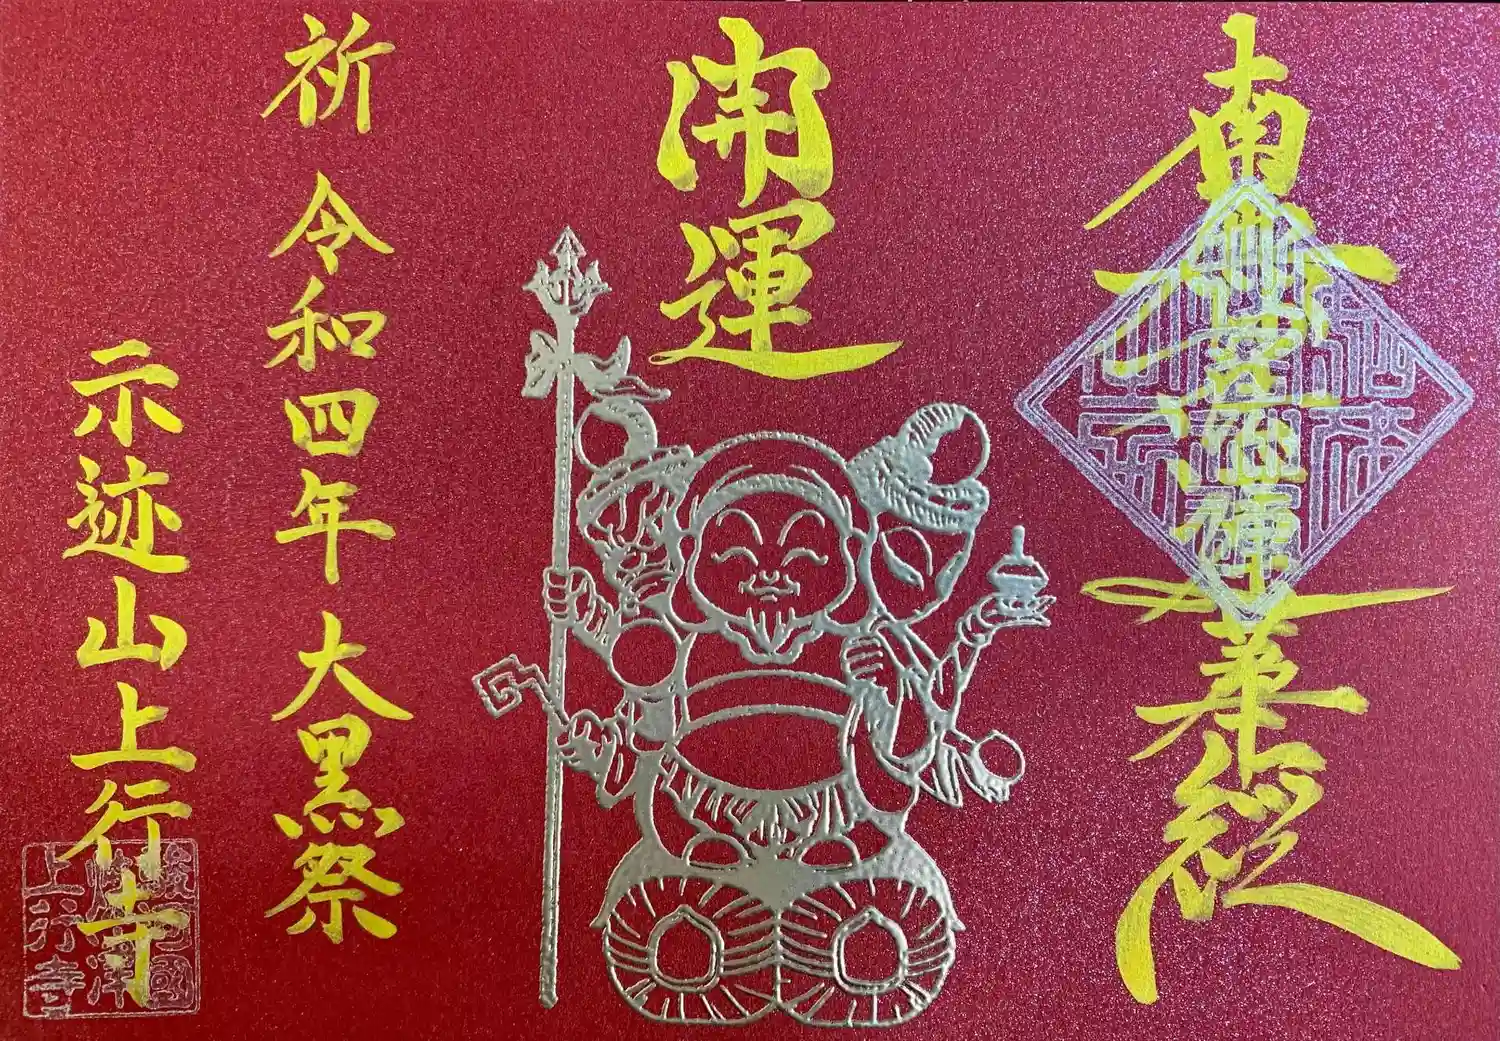 南無妙法蓮華経
開運
祈 令和四年 大黒祭
示迹山上行寺
上行寺